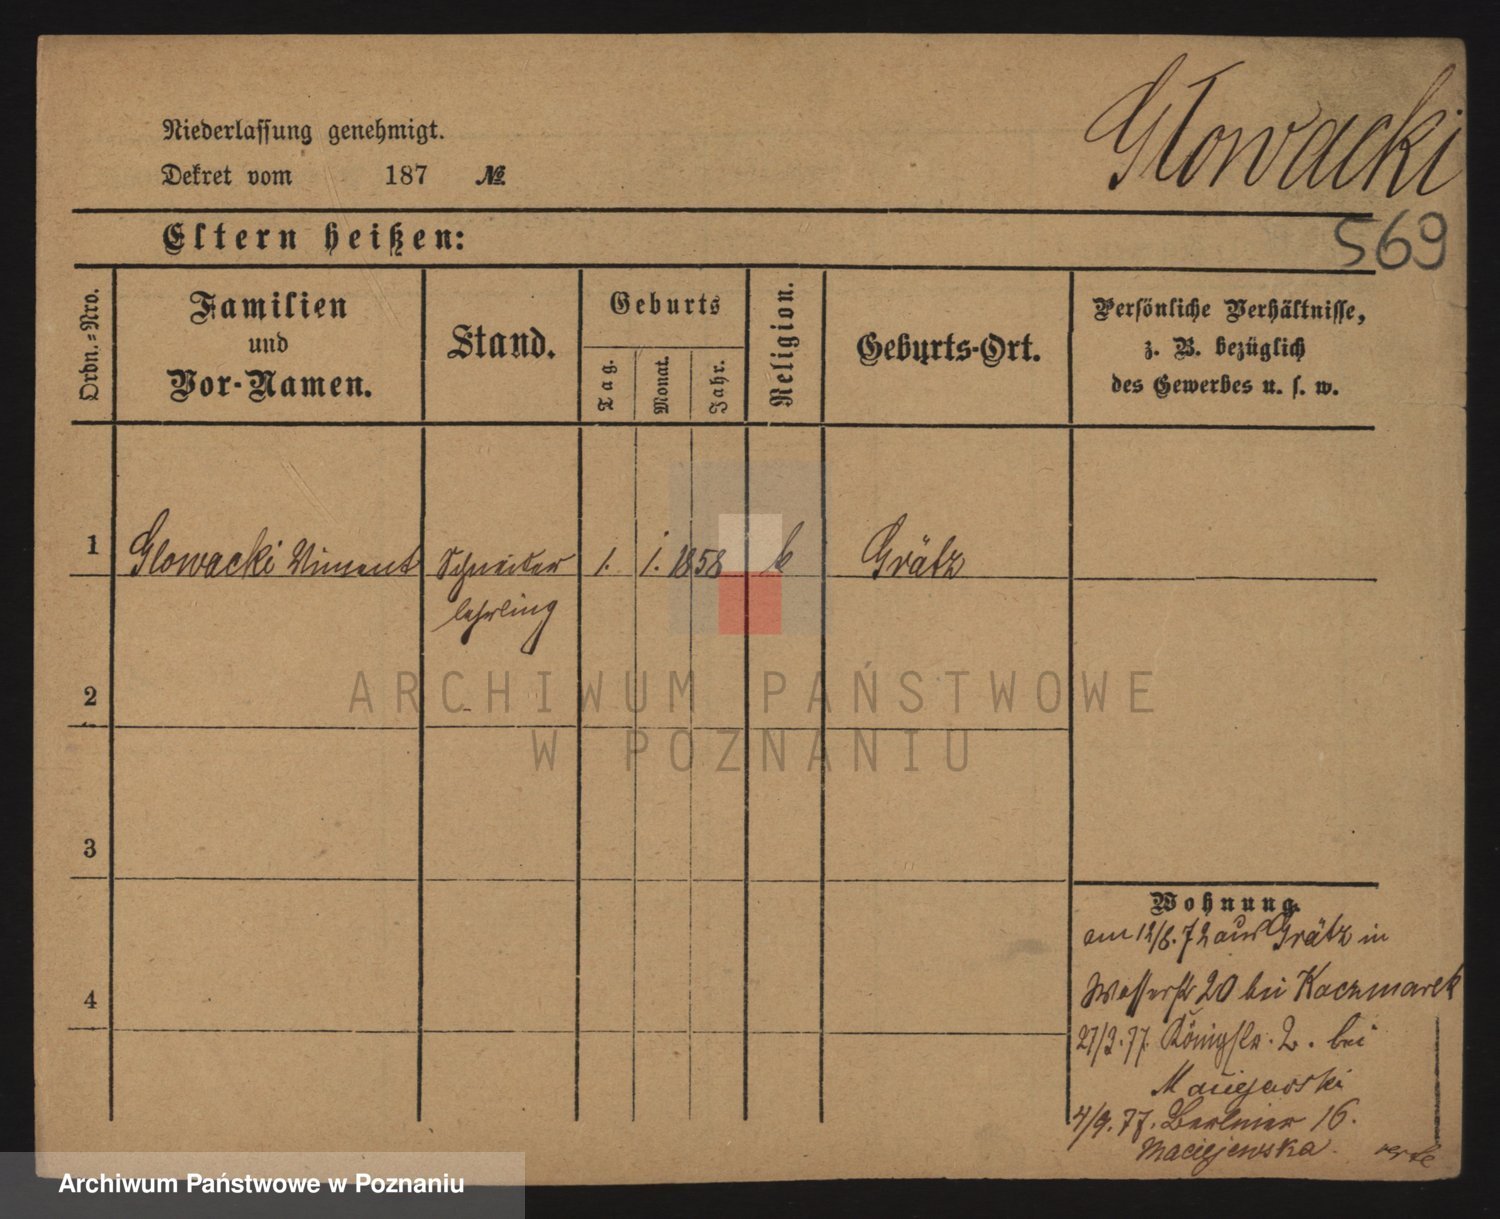 Głowacki
Niederlassung genehmigt.
Dekret vom 187 №
569
Eltern heißen:
Ordn.-Nro.
Familien
und
Vor-Namen.
Stand.
Geburts
Tag.
Monat.
Jahr.
Religion.
Geburts-Ort.
Persönliche Verhältnisse,
z. B. bezüglich
des Gewerbes u. s. w.
1 Glowacki Vincent Schneider 1. 1. 1858 k Grätz
lehrling
2
3
4
Wohnung.
am 12/8. 72 aus Grätz in
Wasserstr 20 bei Kaczmarek
27/3. 77. Königstr. 2. bei
Maciejewski
4/9. 77. Berliner 16.
Maciejewska.
verte
ARCHIWUM PAŃSTWOWE
W POZNANIU
Archiwum Państwowe w Poznaniu